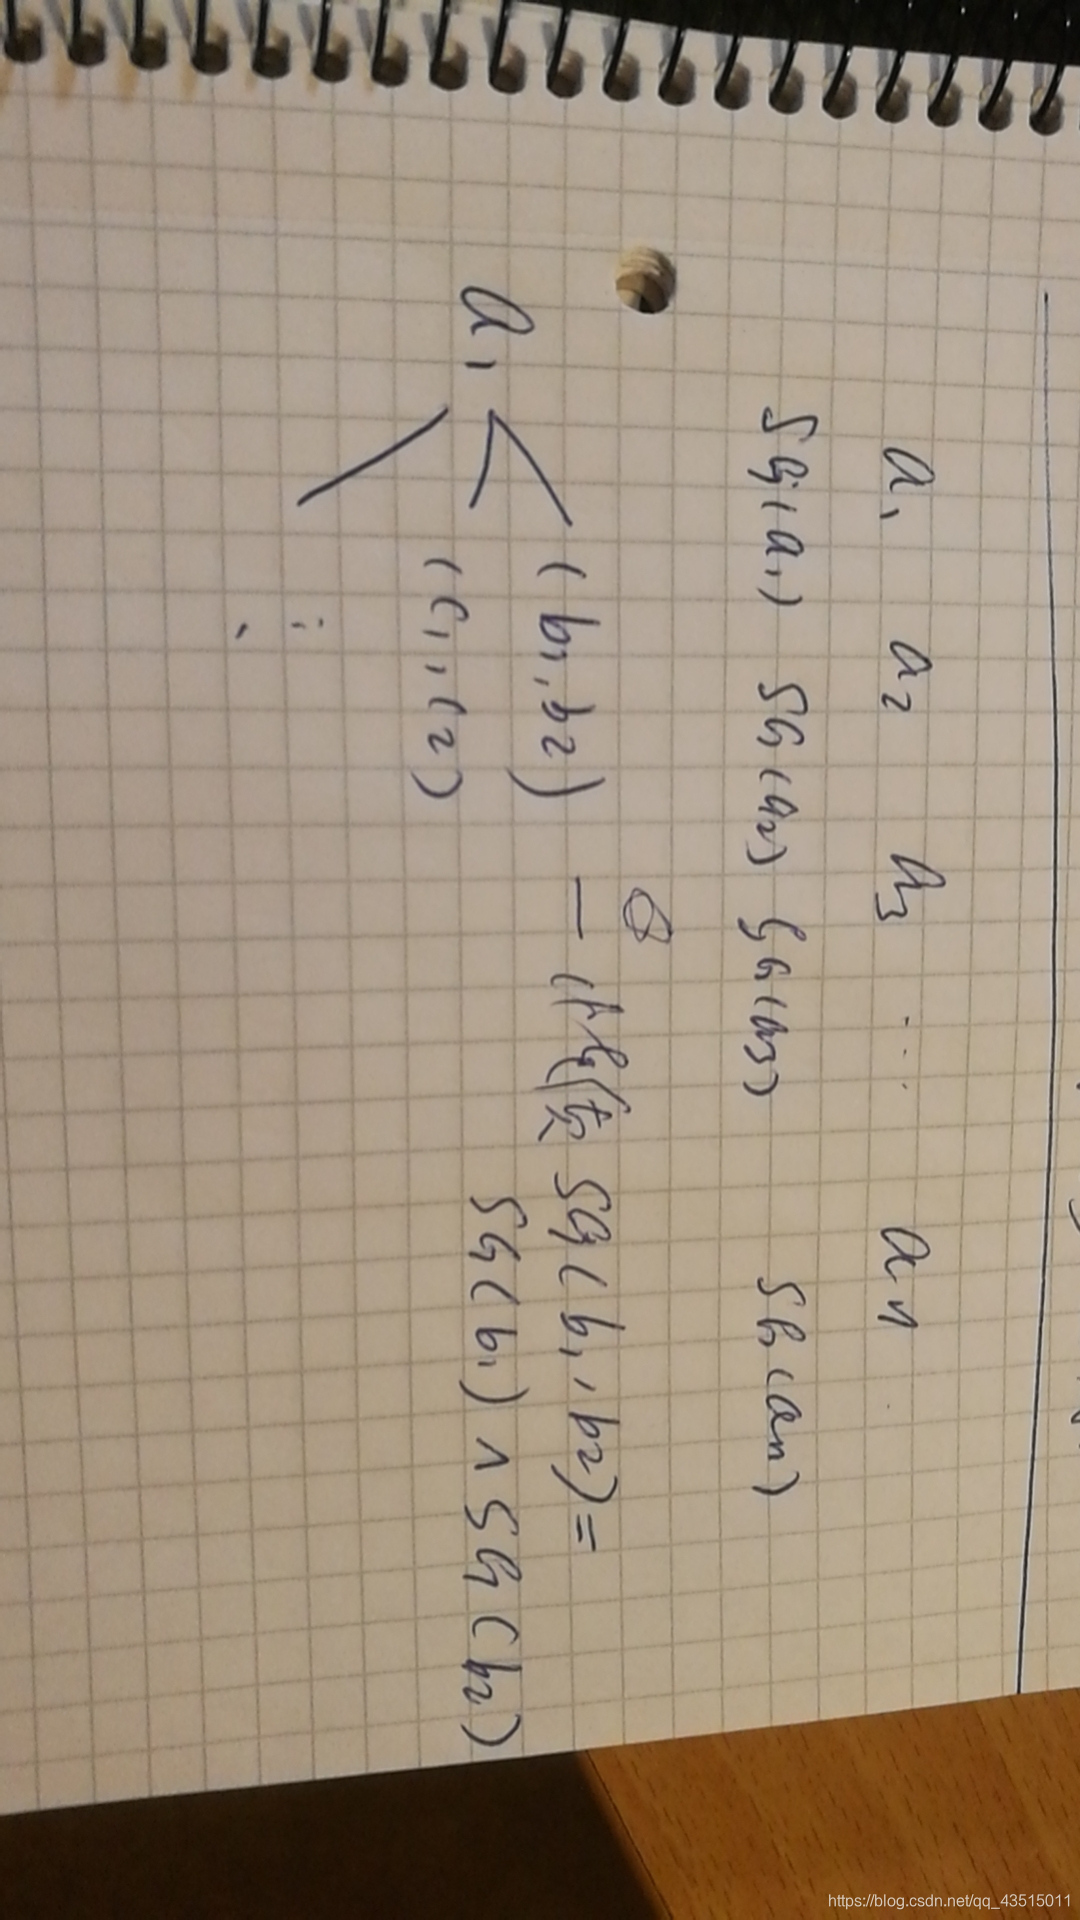 a₁ a₂ a₃ ... an
SG(a₁) SG(a₂) SG(a₃) SG(an)
a₁ (b₁,b₂) — SG(b₁,b₂)=
(c₁,c₂) SG(b₁)∧SG(b₂)
⋮
https://blog.csdn.net/qq_43515011